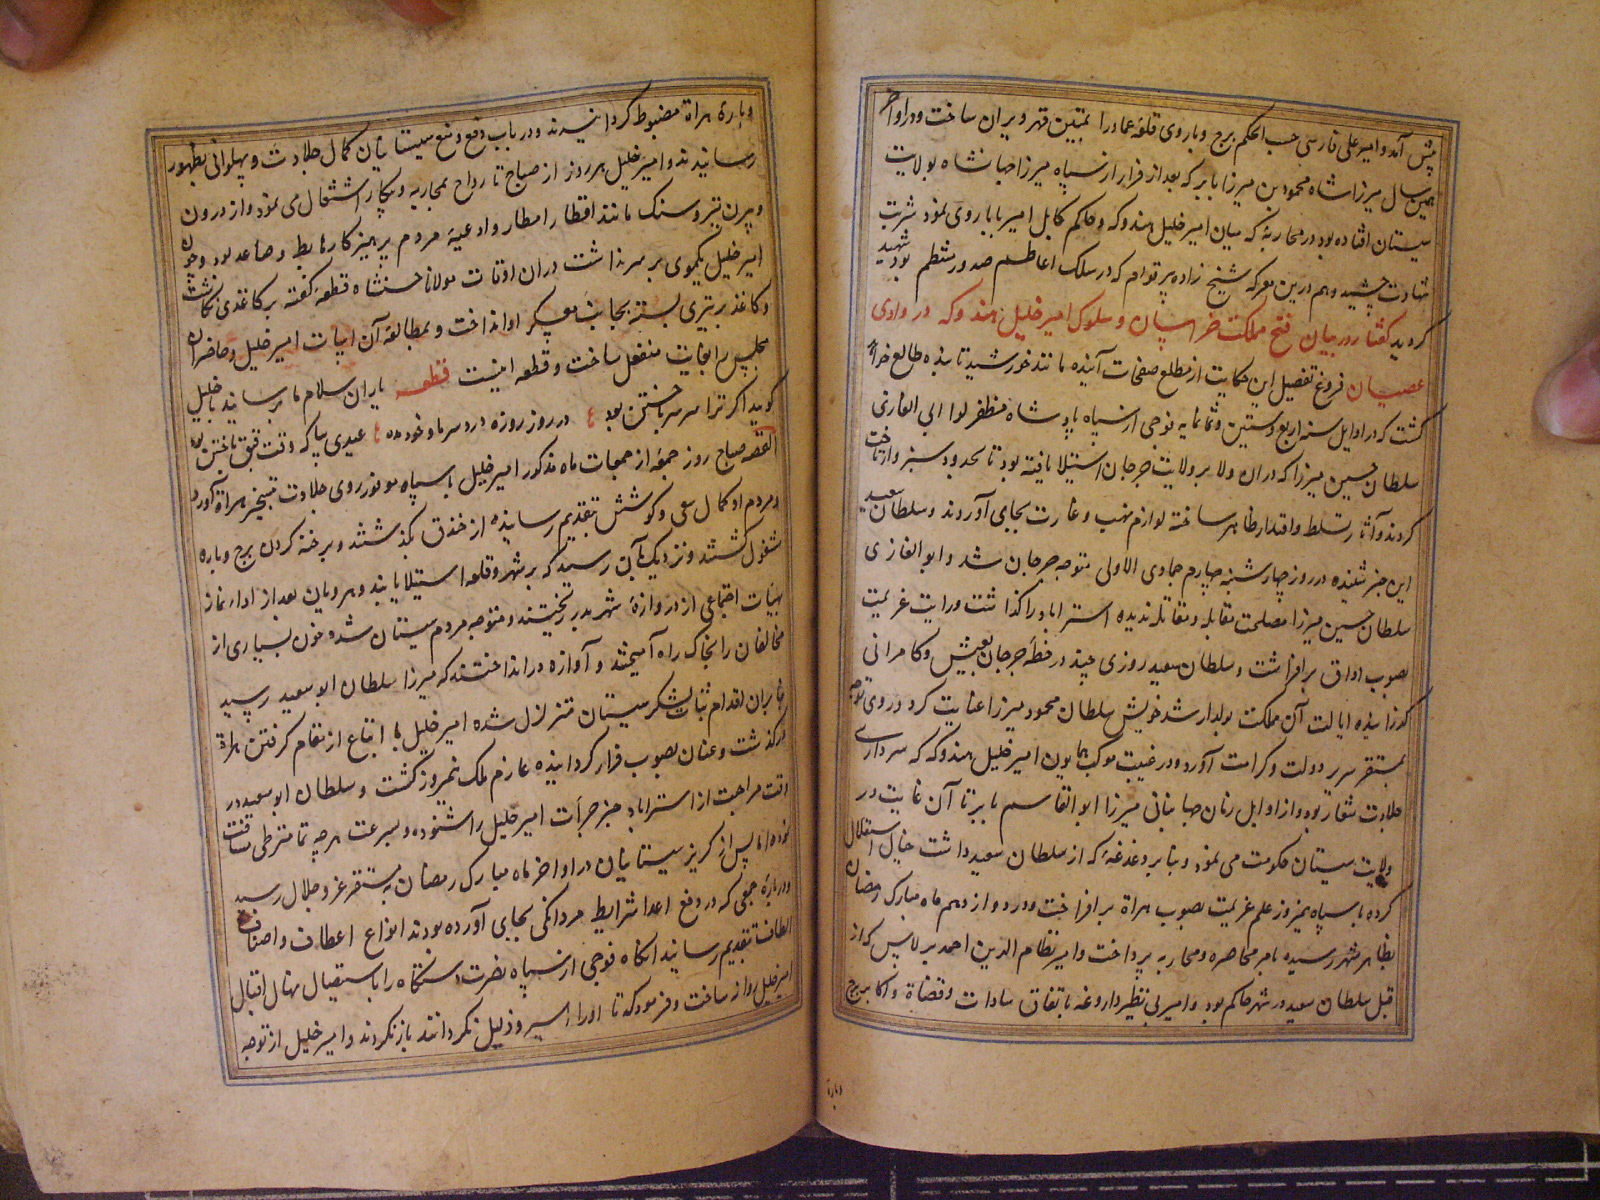 پیش آمد و امیر علی فارسی حسب الحکم برج و باروی قلعهٔ عماد را بتیشهٔ قهر ویران ساخت و در اواخر
همین سال میرزا شاه محمود بن میرزا بابر که بعد از فرار از سپاه میرزا جهانشاه بولایت
سیستان افتاده بود در محاربهٔ که میان امیر خلیل هندوکه و حاکم کابل امیر بابا روی نمود شربت
شهادت چشید و هم درین معرکه شیخ زاده پیر قوام که در سلک اعاظم صدور منتظم بود شهید
کردید گفتار در بیان فتح مملکت خراسان و سلوک امیر خلیل هندوکه در وادی
عصیان فروغ تفصیل این حکایت از مطلع صفحات آینده مانند خورشید تابنده طالع خواهد
کشت که در اوایل سنه اربع و ستین و ثمانمایه فوجی از سپاه پادشاه مظفر لوا ابی الغازی
سلطان حسین میرزا که در ان ولا بر ولایت جرجان استیلا یافته بود تا بحدود سبزوار تاخت
کردند و آثار تسلط و اقتدار ظاهر ساخته لوازم نهب و غارت بجای آوردند و سلطان سعید
این خبر شنیده در روز چهارشنبه چهارم جمادی الاولی متوجه جرجان شد و ابو الغازی
سلطان حسین میرزا مصلحت مقابله و مقاتله ندیده استراباد را کذاشت و رایت عزیمت
بصوب اداق برافراشت و سلطان سعید روزی چند در خطهٔ جرجان بعیش و کامرانی
کذرانیده ایالت آن مملکت بولد ارشد خویش سلطان محمود میرزا عنایت کرد و روی توجه
بمستقر سریر دولت و کرامت آورد و در غیبت موکب همایون امیر خلیل هندوکه که سرداری
جلادت شعار بود و از اوایل زمان جهانبانی میرزا ابو القاسم بابر تا آن غایت در
ولایت سیستان حکومت می نمود و بنابر دغدغهٔ که از سلطان سعید داشت خیال استقلال
کرده با سپاه نیمروز علم عزیمت بصوب هراة برافراخت و در دوازدهم ماه مبارک رمضان
بظاهر شهر رسیده بامر محاصره و محاربه پرداخت و امیر نظام الدین احمد برلاس که از
قبل سلطان سعید در شهر حاکم بود و امیر بی نظیر داروغه باتفاق سادات و قضاة و اکابر برج
وبارهٔ
وبارهٔ هراة مضبوط کردانیدند و در باب دفع و منع سیستانیان کمال جلادت و پهلوانی بظهور
رسانیدند و امیر خلیل هر روز از صباح تا رواح بمحاربه و پیکار اشتغال می نمود و از درون
و بیرون تیر و سنک مانند اقطار امطار و ادعیهٔ مردم پرهیزکار هابط و صاعد بود و چون
امیر خلیل یکموی بر سر نداشت دران اوقات مولانا حسنشاه قطعهٔ گفته بر کاغذی نکاشت
و کاغذ بر تیری بسته بجانب معسکر او انداخت و بمطالعهٔ آن ابیات امیر خلیل و حاضران
مجلس را بغایت منفعل ساخت و قطعه اینست قطعه یاران سلام ما برسانید با خلیل
کوید اکر ترا سر سر باختن بود در روز روزه درد سر ما و خود مده عیدی بیا که وقت قبق تاختن بود
القصه صباح روز جمعه از جمعات ماه مذکور امیر خلیل با سپاه موفور روی جلادت بتسخیر هراة آورد
و مردم او کمال سعی و کوشش بتقدیم رسانیده از خندق بکذشتند و برخنه کردن برج و باره
مشغول کشتند و نزدیک بآن رسید که بر شهر و قلعه استیلا یابند و هرویان بعد از اداء نماز
بهیأت اجتماعی از دروازهٔ شهر بدر ریختند و متوجه مردم سیستان شده خون بسیاری از
مخالفان را بخاک راه آمیختند و آوازه در انداختند که میرزا سلطان ابو سعید رسید
بنابران اقدام ثبات لشکر سیستان متزلزل شده امیر خلیل با اتباع از مقام کرفتن هراة
درکذشت و عنان بصوب فرار کردانیده عازم ملک نیمروز کشت و سلطان ابو سعید در
وقت مراجعت از استراباد خبر جرأت امیر خلیل را شنوده و بسرعت هر چه تمامتر طی مسافت
نموده اما پس از کریز سیستانیان در اواخر ماه مبارک رمضان بمستقر عز و جلال رسید
و دربارهٔ جمعی که در دفع اعدا شرایط مردانکی بجای آورده بودند انواع اعطاف و اصناف
الطاف بتقدیم رسانید انکاه فوجی از سپاه نصرت دستکاه را باستیصال نهال اقبال
امیر خلیل روانه ساخت و فرمود که تا او را اسیر و ذلیل نکردانند بازنکردند و امیر خلیل از توجه